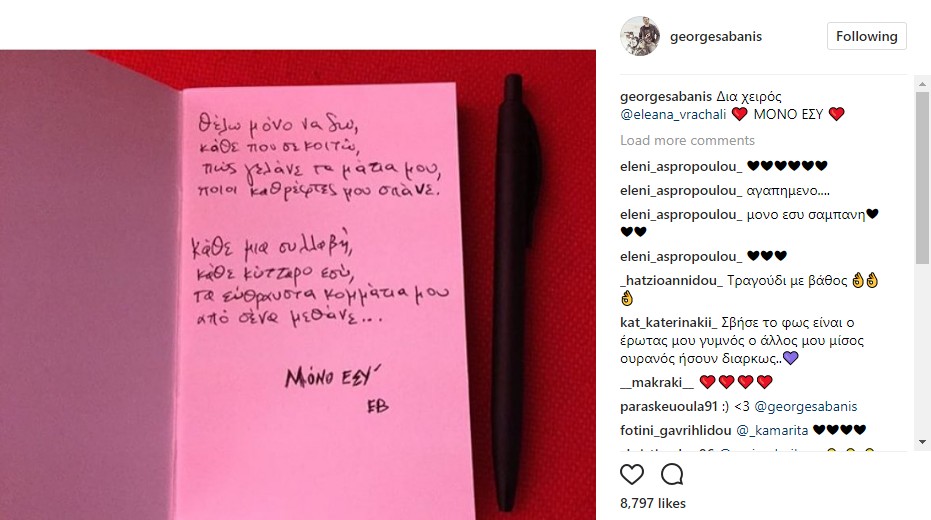 Θέλω μόνο να δω,
κάθε που σε κοιτώ,
πώς γελάνε τα μάτια μου,
ποιοι καθρέφτες μου σπάνε.
κάθε μια συλλαβή,
κάθε κύτταρο εσύ,
τα εύθραυστα κομμάτια μου
από σένα μεθάνε...
ΜΟΝΟ ΕΣΥ
ΕΒ
georgesabanis
Following
georgesabanis Δια χειρός
@eleana_vrachali ❤️ ΜΟΝΟ ΕΣΥ ❤️
Load more comments
eleni_aspropoulou_ ♥♥♥♥♥♥
eleni_aspropoulou_ αγαπημενο....
eleni_aspropoulou_ μονο εσυ σαμπανη♥
♥♥
eleni_aspropoulou_ ♥♥♥
_hatzioannidou_ Τραγούδι με βάθος 👌👌
👌
kat_katerinakii_ Σβήσε το φως είναι ο
έρωτας μου γυμνός ο άλλος μου μίσος
ουρανός ήσουν διαρκως..💜
__makraki__ ❤️❤️❤️❤️
paraskeuoula91 :) <3 @georgesabanis
fotini_gavrihlidou @_kamarita ♥♥♥♥
8,797 likes